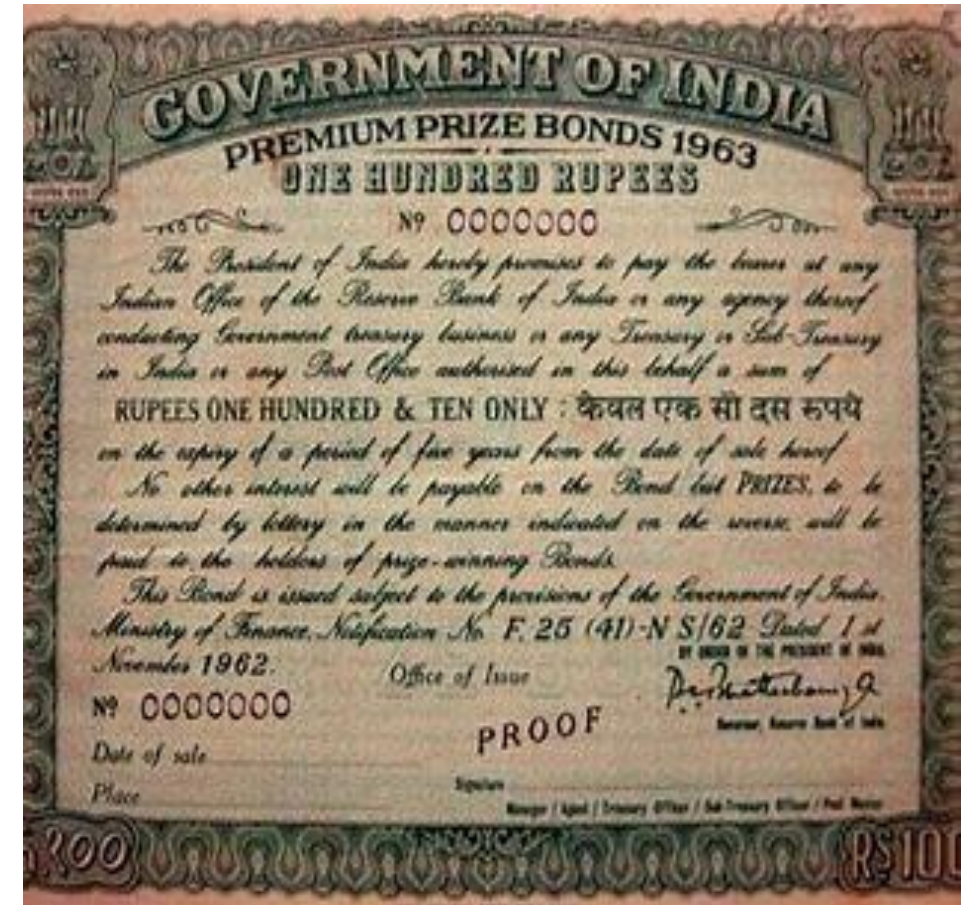 GOVERNMENT OF INDIA
PREMIUM PRIZE BONDS 1963
ONE HUNDRED RUPEES
Nº 0000000
The President of India hereby promises to pay the bearer at any
Indian Office of the Reserve Bank of India or any agency thereof
conducting Government treasury business or any Treasury or Sub-Treasury
in India or any Post Office authorised in this behalf a sum of
RUPEES ONE HUNDRED & TEN ONLY : केवल एक सौ दस रूपये
on the expiry of a period of five years from the date of sale hereof
No other interest will be payable on the Bond but PRIZES, to be
determined by lottery in the manner indicated on the reverse, will be
paid to the holders of prize-winning Bonds.
This Bond is issued subject to the provisions of the Government of India,
Ministry of Finance, Notification No. F. 25 (41)-N S/62 Dated 1 st
November 1962.
BY ORDER OF THE PRESIDENT OF INDIA
Office of Issue
Nº 0000000
Governor, Reserve Bank of India
PROOF
Date of sale
Place
Signature
Manager / Agent / Treasury Officer / Sub-Treasury Officer / Post Master
१००
RS100